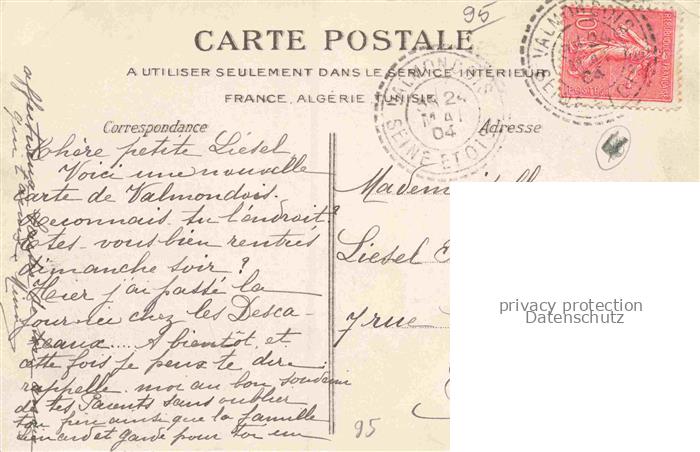 95
CARTE POSTALE
A UTILISER SEULEMENT DANS LE SERVICE INTÉRIEUR
FRANCE, ALGÉRIE, TUNISIE
Correspondance
Adresse
VALMONDOIS
24
MAI
04
SEINE ET OISE
Chère petite Liesel
Voici une nouvelle
carte de Valmondois.
Reconnais-tu l'endroit?
Etes-vous bien rentrés
dimanche soir?
Hier j'ai passé la
journée chez les Desca-
teaux.... A bientôt et
cette fois je peux te dire
rappelle-moi au bon souvenir
de tes Parents sans oublier
ton frère ainsi que la famille
et garde pour toi un
Mademoiselle
Liesel
7 rue
95
privacy protection
Datenschutz